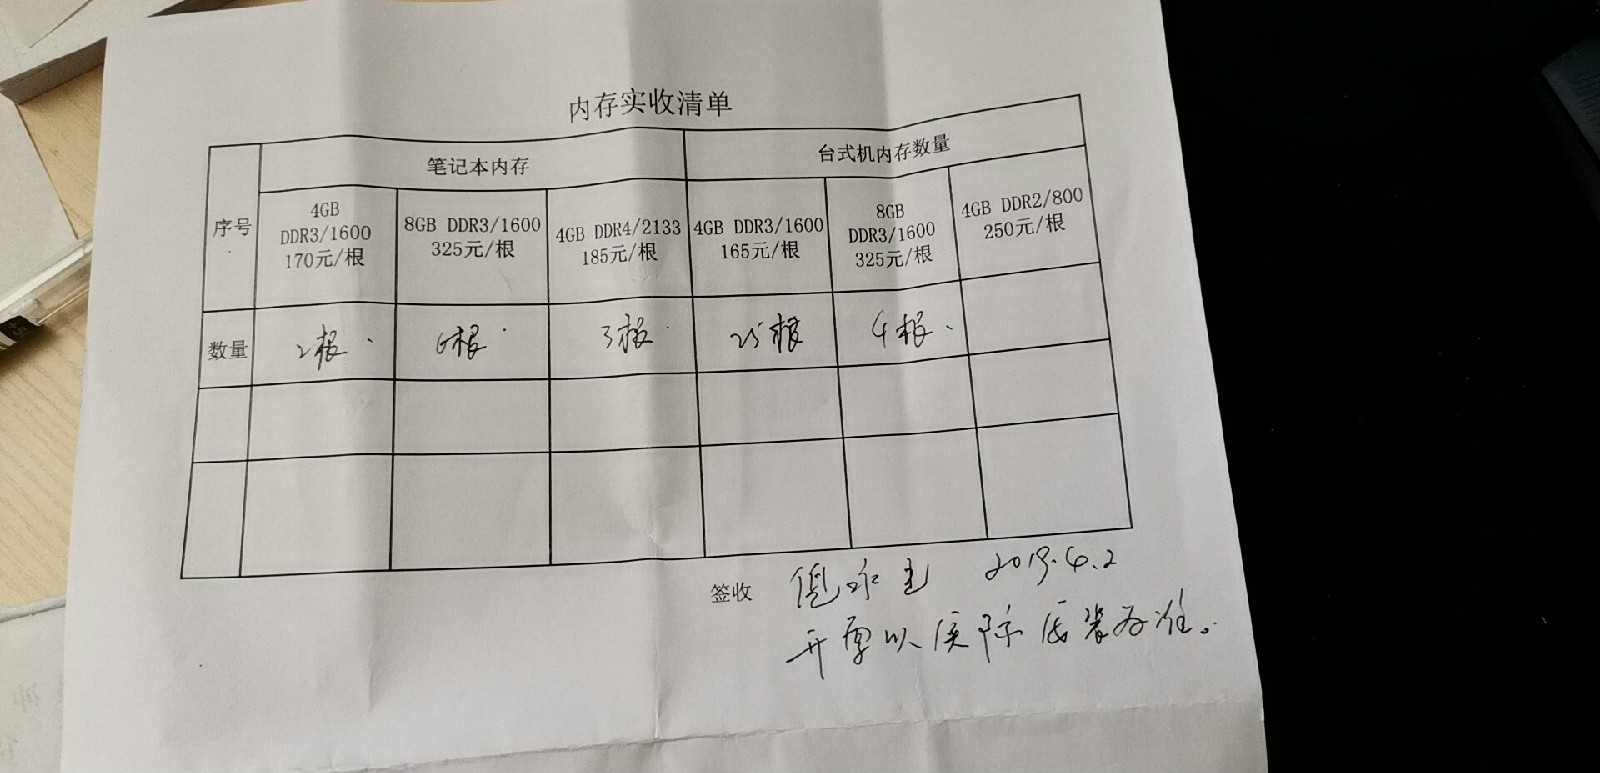 内存实收清单
序号
笔记本内存
台式机内存数量
4GB
DDR3/1600
170元/根
8GB DDR3/1600
325元/根
4GB DDR4/2133
185元/根
4GB DDR3/1600
165元/根
8GB
DDR3/1600
325元/根
4GB DDR2/800
250元/根
数量
2根
6根
3根
25根
4根
签收
2019.4.2
开票以实际安装为准。